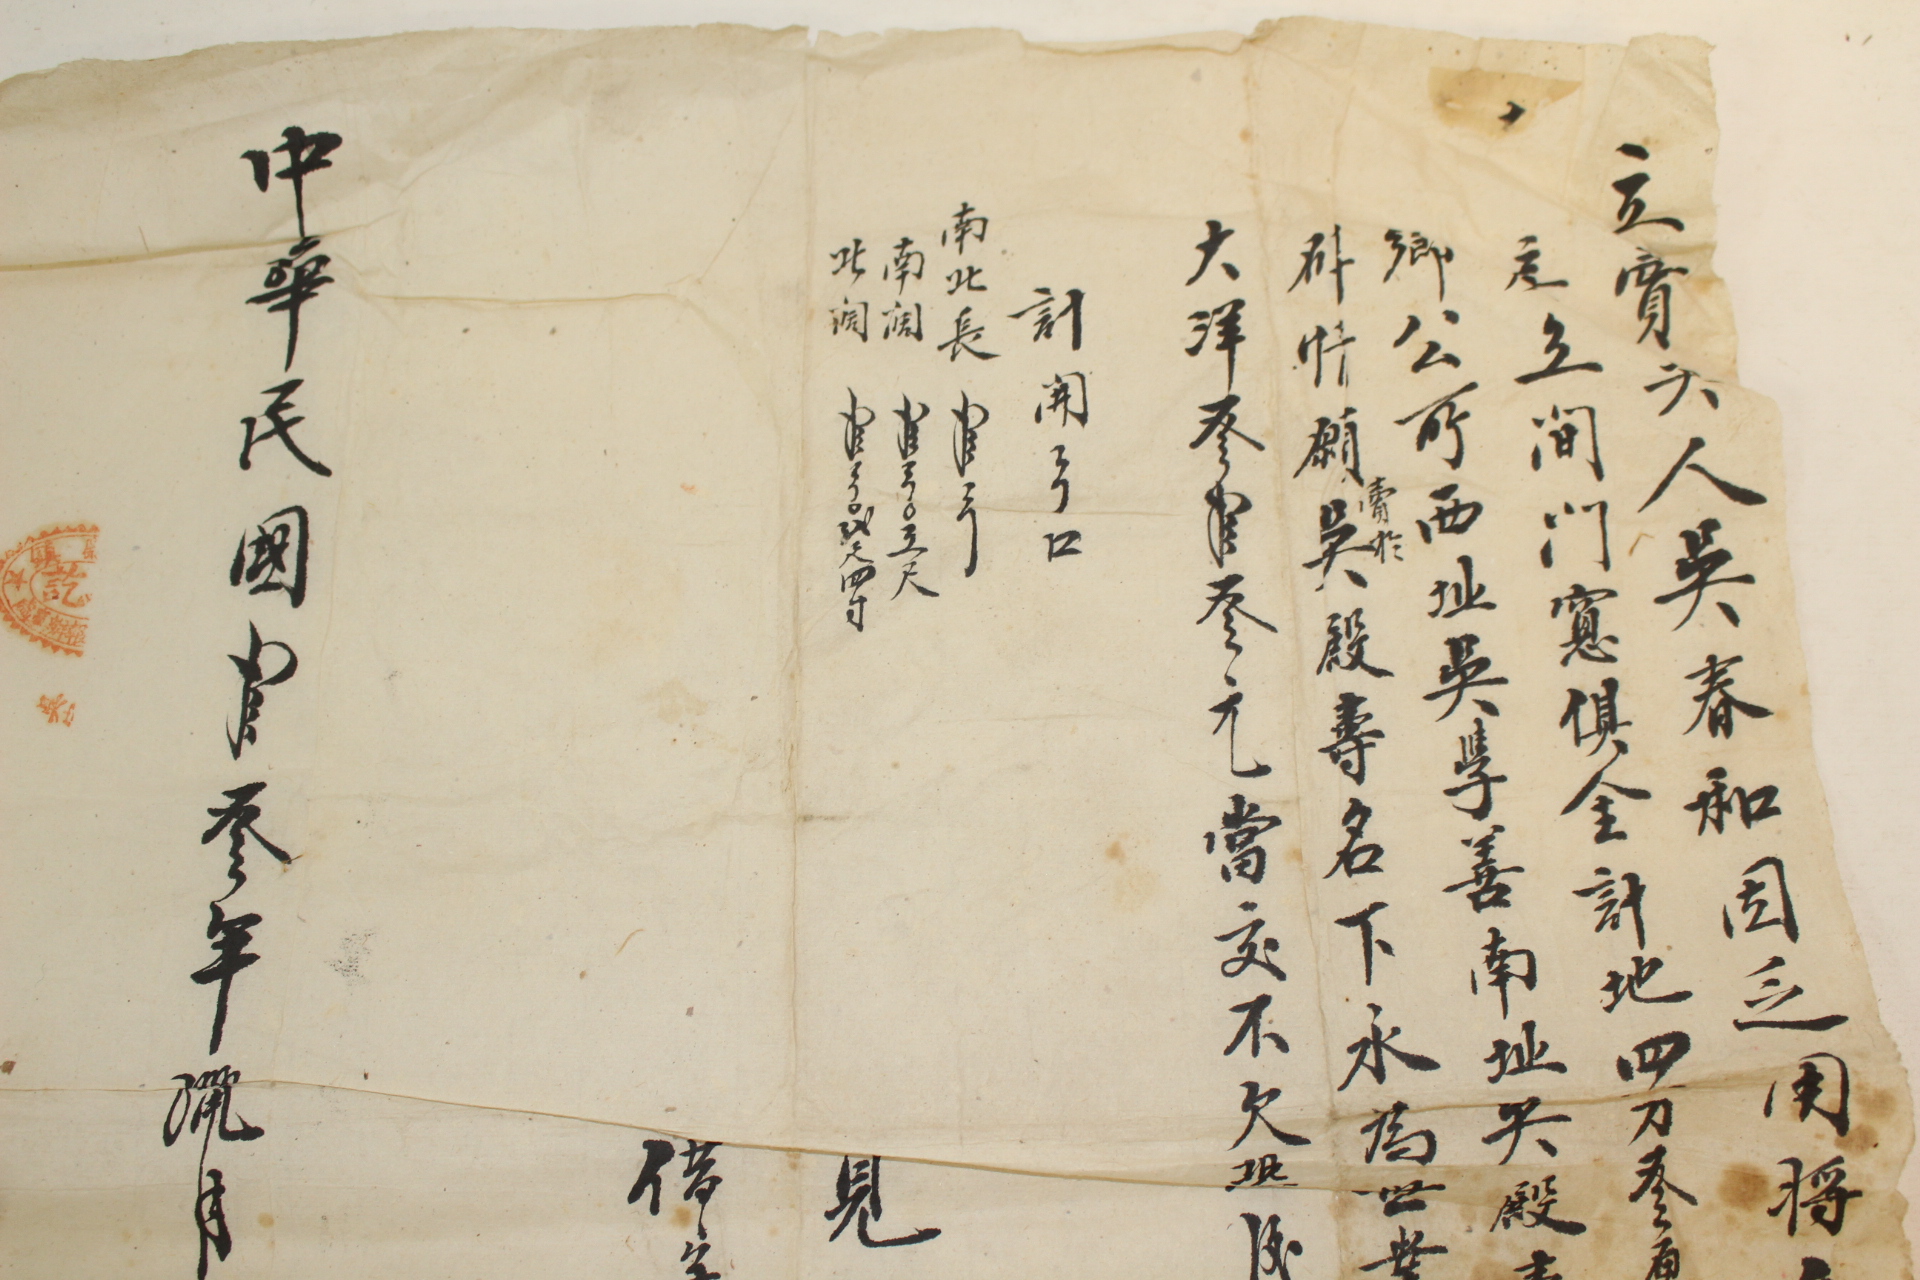 立賣文人吳春和因乏用將
立间门窻俱全計地四刀叁
鄉公所西址吳學善南址吳殿
斜情願賣於吳殿壽名下永為世業
大洋叁拾叁元當交不欠恐後
計開弓口
南北長拾弓
南阔拾弓〇五尺
北阔拾弓〇弍尺四寸
見
借字
中華民國拾叁年臘月
訖